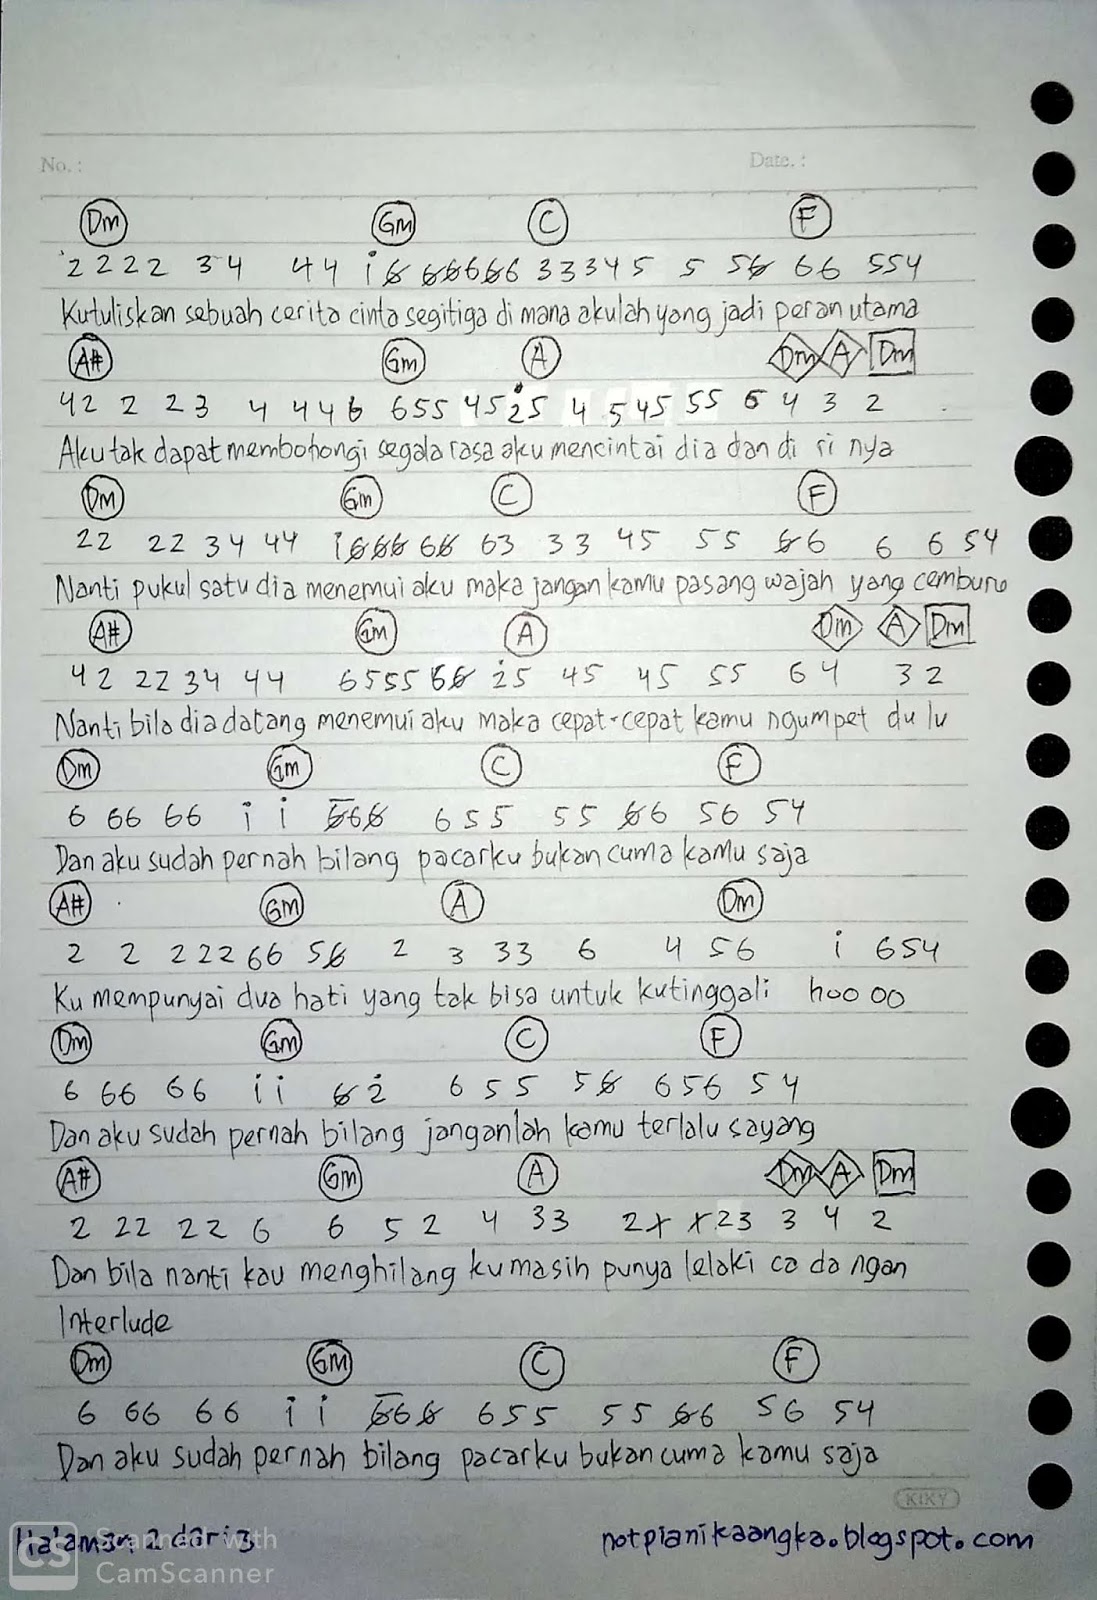 No. : Date. :
Dm Gm C F
2222 34 44 i6 66666 33345 5 56 66 554
Kutuliskan sebuah cerita cinta segitiga di mana akulah yang jadi peran utama
A# Gm A Dm A Dm
42 2 23 4 446 655 45 i25 4 545 55 6 4 3 2
Aku tak dapat membohongi segala rasa aku mencintai dia dan di ri nya
Dm Gm C F
22 22 34 44 i666 66 63 33 45 55 66 6 6 54
Nanti pukul satu dia menemui aku maka jangan kamu pasang wajah yang cemburu
A# Gm A Dm A Dm
42 22 34 44 6555 66 2̇5 45 45 55 64 32
Nanti bila dia datang menemui aku maka cepat-cepat kamu ngumpet du lu
Dm Gm C F
6 66 66 i i 666 655 55 66 56 54
Dan aku sudah pernah bilang pacarku bukan cuma kamu saja
A# Gm A Dm
2 2 222 66 56 2 3 33 6 4 56 i 654
Ku mempunyai dua hati yang tak bisa untuk kutinggali hoo oo
Dm Gm C F
6 66 66 i i 6 2̇ 6 55 56 656 54
Dan aku sudah pernah bilang janganlah kamu terlalu sayang
A# Gm A Dm A Dm
2 22 22 6 6 5 2 4 33 2x x23 3 4 2
Dan bila nanti kau menghilang ku masih punya lelaki ca da ngan
Interlude
Dm Gm C F
6 66 66 i i 666 655 55 66 56 54
Dan aku sudah pernah bilang pacarku bukan cuma kamu saja
KIKY
Halaman 2 dari 3 notpianikaangka.blogspot.com
CS Scanned with
CamScanner